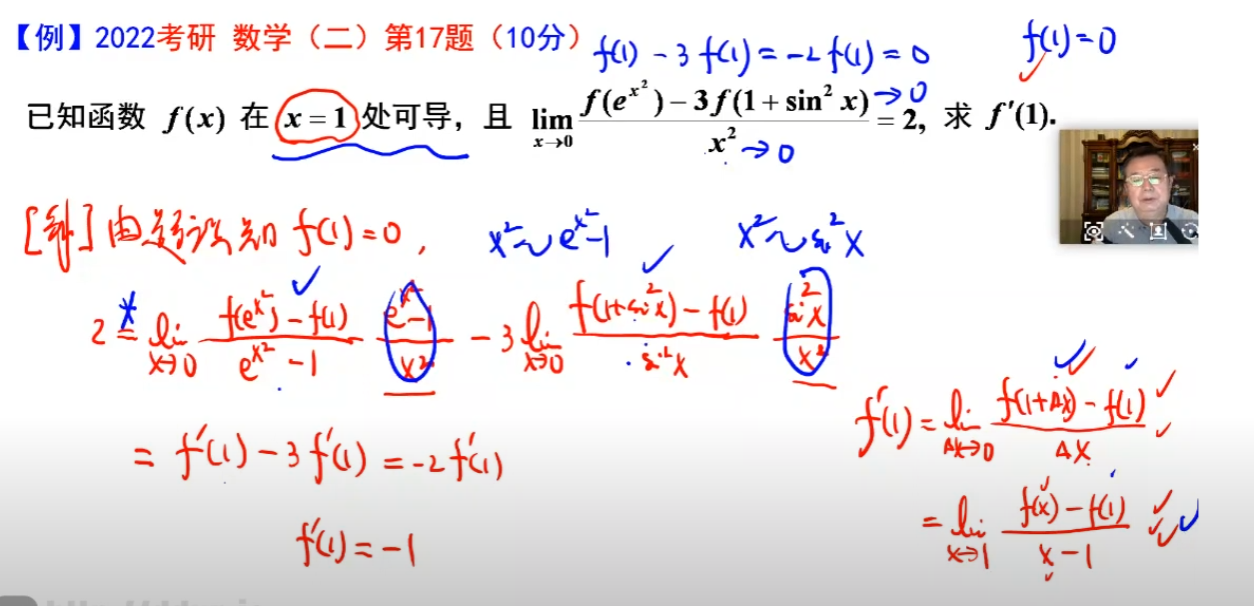 【例】2022考研 数学（二）第17题（10分）
f(1) - 3f(1) = -2f(1) = 0
f(1)=0
已知函数 f(x) 在 x = 1 处可导，且 lim x→0 f(e^{x²}) − 3f(1 + sin² x) →0 / x² →0 = 2, 求 f′(1).
[解] 由题设知 f(1)=0,
x² ~ e^{x²}-1
x² ~ sin²x
2 = lim x→0 f(e^{x²}) - f(1) / e^{x²} - 1 e^{x²}-1 / x² - 3 lim x→0 f(1+sin²x) - f(1) / sin²x sin²x / x²
= f′(1) - 3f′(1) = -2f′(1)
f′(1) = -1
f′(1) = lim Δx→0 f(1+Δx) - f(1) / Δx
= lim x→1 f(x) - f(1) / x - 1